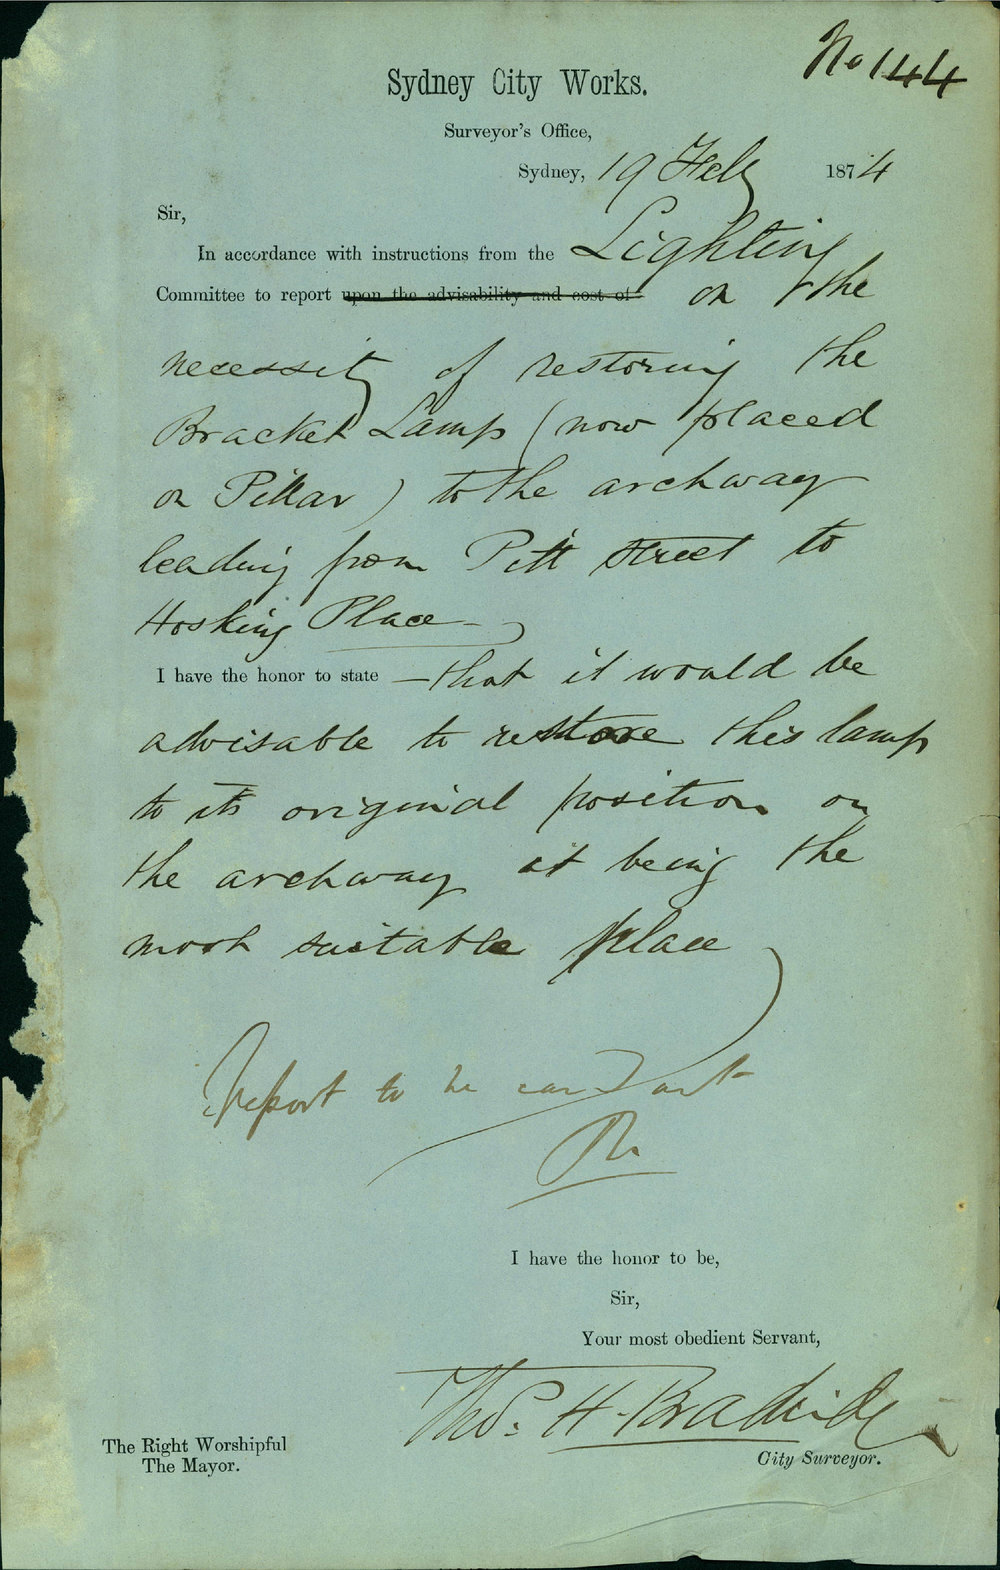 No 144
Sydney City Works.
Surveyor's Office,
Sydney, 19 Feby 1874
Sir,
In accordance with instructions from the Lighting
Committee to report upon the advisability and cost of on the
necessity of restoring the
Bracket Lamp (now placed
on Pillar) to the archway
leading from Pitt Street to
Hosking Place
I have the honor to state – that it would be
advisable to restore this lamp
to its original position on
the archway it being the
most suitable place
Report to be carried out
I have the honor to be,
Sir,
Your most obedient Servant,
Thos. H. Bradridge
City Surveyor.
The Right Worshipful
The Mayor.